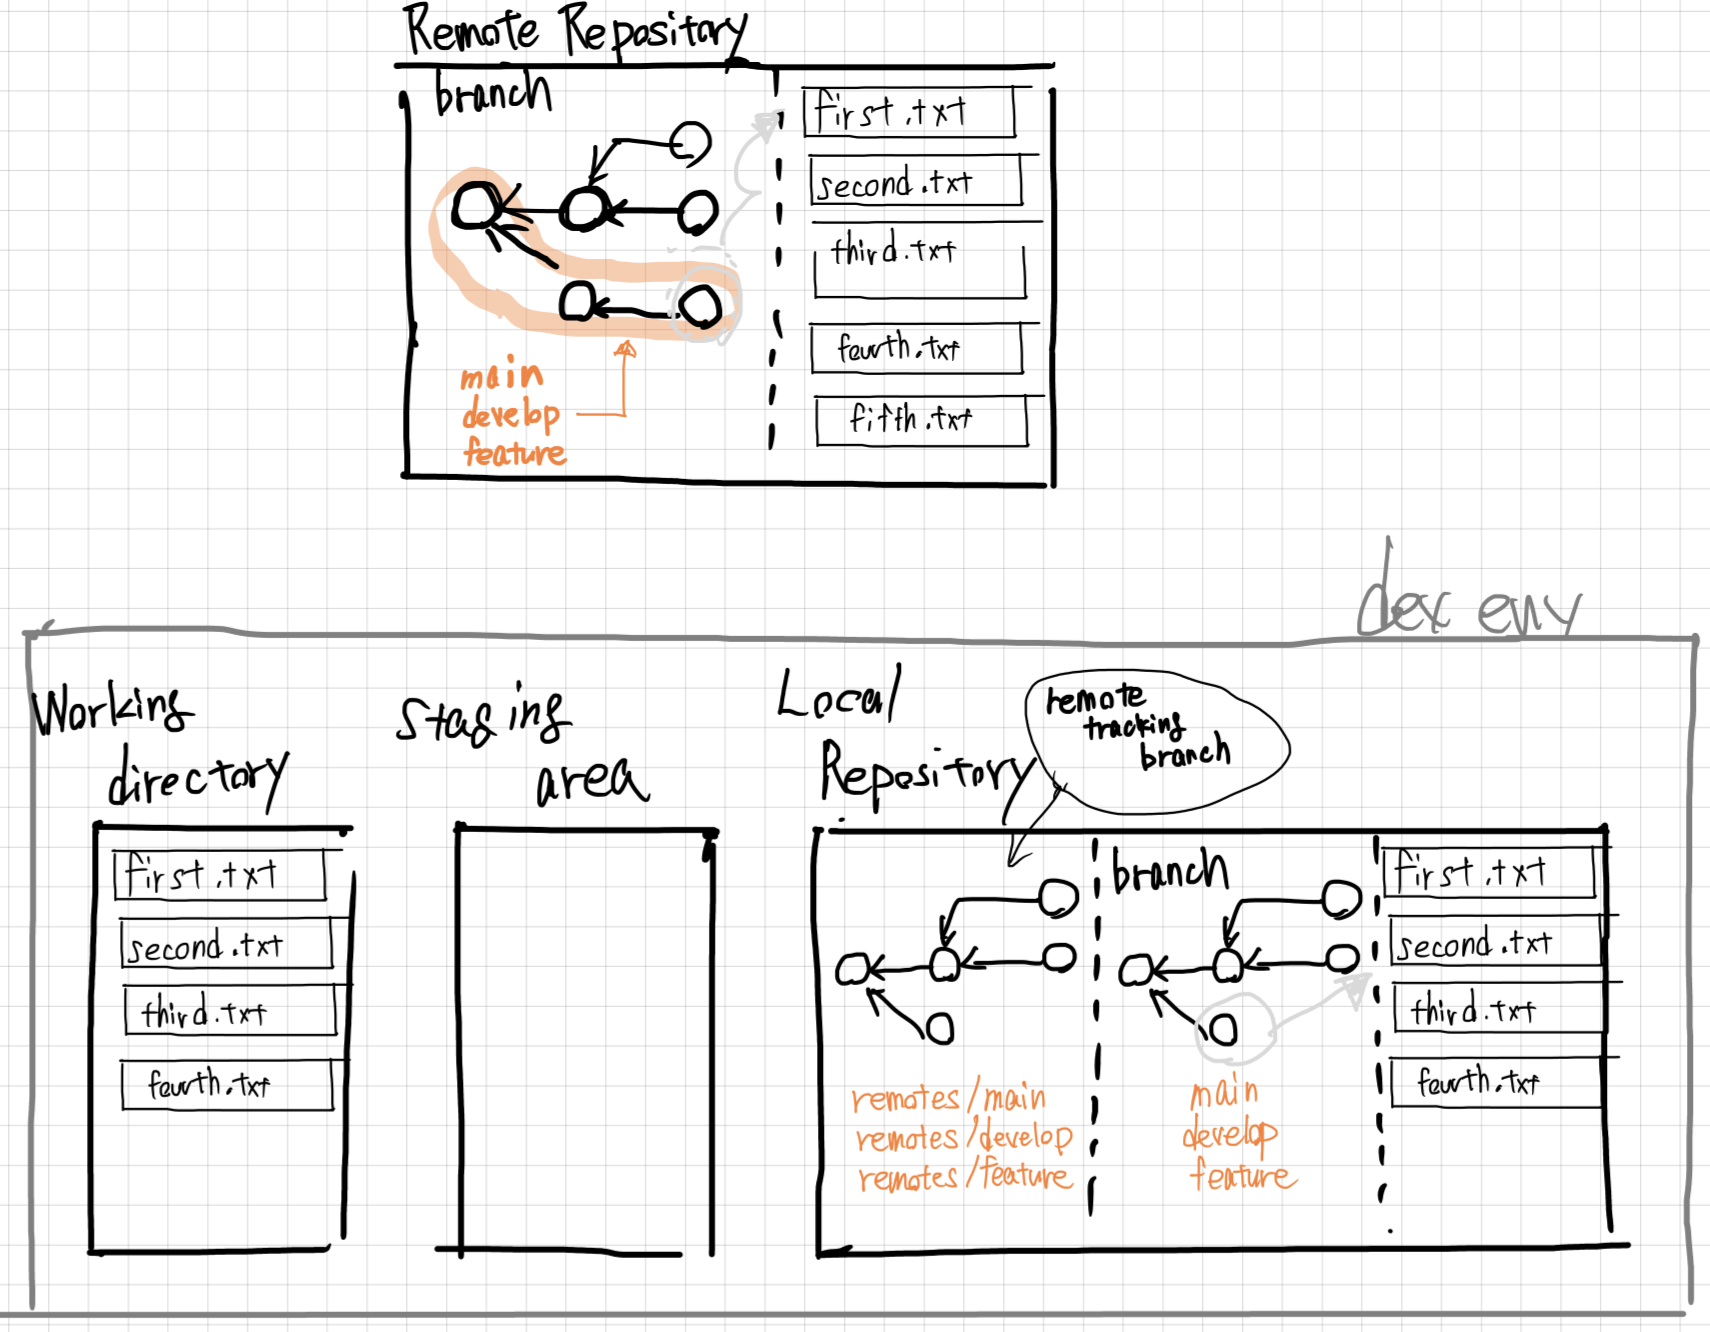 Remote Repository
branch
first.txt
second.txt
third.txt
fourth.txt
fifth.txt
main
develop
feature
dev env
Working
directory
first.txt
second.txt
third.txt
fourth.txt
Staging
area
Local
Repository
remote
tracking
branch
branch
remotes/main
remotes/develop
remotes/feature
main
develop
feature
first.txt
second.txt
third.txt
fourth.txt